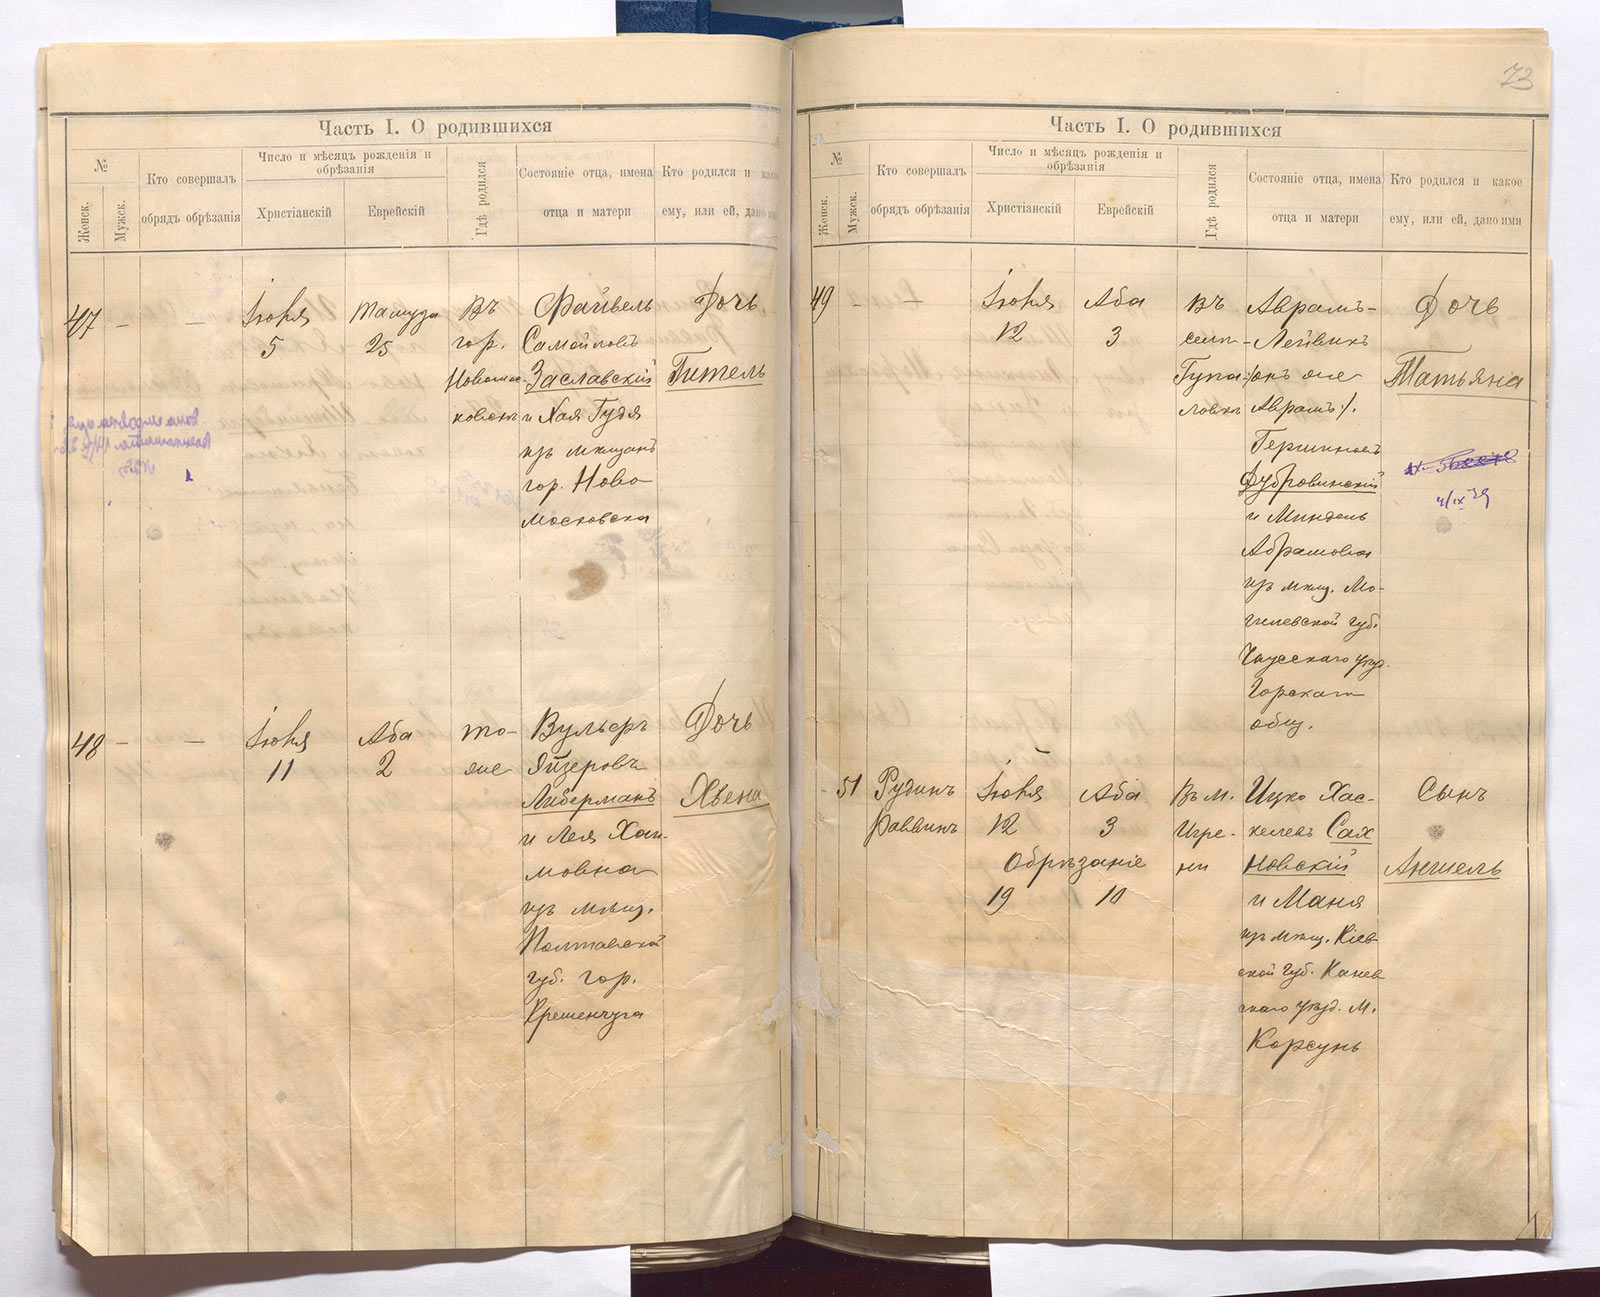 Часть I. О родившихся
№
Женск.
Мужск.
Кто совершалъ
обрядъ обрѣзанія
Число и мѣсяцъ рожденія и
обрѣзанія
Христіанскій
Еврейскій
Гдѣ родился
Состояніе отца, имена
отца и матери
Кто родился и какое
ему, или ей, дано имя
47
—
—
Іюля
5
Тамуза
25
Въ
гор.
Новомос-
ковскѣ
Файвель
Самойловъ
Заславскій
и Хая Гудя
изъ мѣщанъ
гор. Ново
московска
Дочь
Гитель
48
—
—
Іюля
11
Аба
2
то-
же
Вульфъ
Лейзеровъ
Либерманъ
и Лея Хаи-
мовна
изъ мѣщ.
Полтавской
губ. гор.
Кременчуга
Дочь
Хвеня
73
Часть I. О родившихся
№
Женск.
Мужск.
Кто совершалъ
обрядъ обрѣзанія
Число и мѣсяцъ рожденія и
обрѣзанія
Христіанскій
Еврейскій
Гдѣ родился
Состояніе отца, имена
отца и матери
Кто родился и какое
ему, или ей, дано имя
49
—
—
Іюля
12
Аба
3
въ
селѣ
Гупа-
ловкѣ
Аврамъ-
Лейвикъ
/:онъ же
Аврамъ:/
Гершковъ
Дубровинскій
и Миндель
Абрамовна
изъ мѣщ. Мо-
гилевской губ.
Чаусскаго уѣзд.
Горскаго
общ.
Дочь
Татьяна
4/IX 29
-
51
Рудинъ
Раввинъ
Іюля
12
Аба
3
Обрѣзаніе
19
10
Въ м.
Игре-
ни
Ицко Хас-
келевъ Сах
новскій
и Маня
изъ мѣщ. Кіев-
ской губ. Канев
скаго уѣзд. м.
Корсунь
Сынъ
Аншель